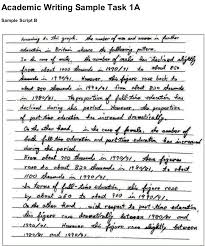 Academic Writing Sample Task 1A
Sample Script B
According to this graph, the number of men and women in further
education in Britain shows the following pattern.
In the case of male, the number of male has declined slightly
from about 1000 thousands in 1970/71 to about 850
thousands in 1990/91. However, this figure rose back to
about 850 thousands in 1990/91 from about 820 thousands
in 1980/81. The proportion of full-time education has
declined during this period. However, the proportion
of part-time education has increased dramatically.
On the other hand, in the case of female, the number of
both full-time education and part-time education has increased
during the period.
From about 700 thousands in 1970/71, these figures
rose to about 820 thousands in 1980/81, to about
900 thousands in 1990/91.
In terms of full-time education, this figure rose
by about 260 to about 900 in 1990/91.
On the other hand, with respect to part-time education,
this figure rose dramatically between 1980/81 and
1990/91. However, this figure rose slightly between
1970/71 and 1980/81.